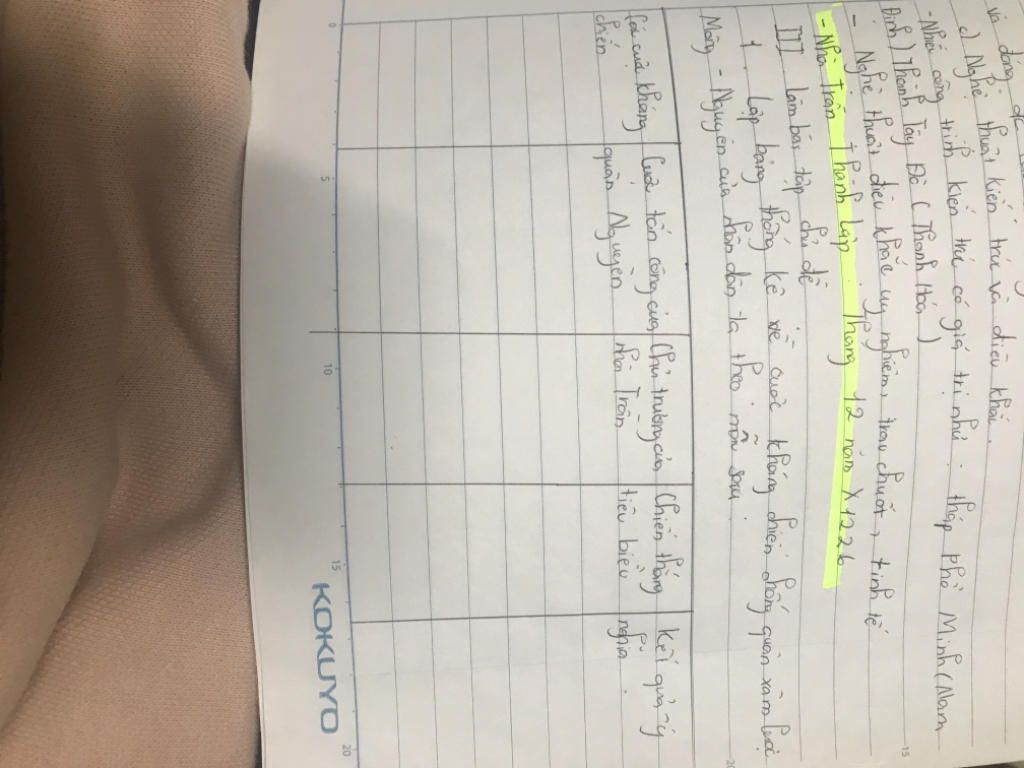 và đóng
c) Nghệ thuật kiến trúc và điêu khắc.
- Nhiều công trình kiến trúc có giá trị như: tháp Phổ Minh (Nam
Định) Thành Tây Đô (Thanh Hóa)
- Nghệ thuật điêu khắc uy nghiêm, trau chuốt, tinh tế
- Nhà Trần thành lập: tháng 12 năm 1226
III làm bài tập chủ đề
1. Lập bảng thống kê về cuộc kháng chiến chống quân xâm lược
Mông - Nguyên của nhân dân ta theo mẫu sau.
Các cuộc kháng chiến
Cuộc tấn công của quân Nguyên
Chủ trương của nhà Trần
Chiến thắng tiêu biểu
Kết quả - ý nghĩa.
0 5 10 15 20
KOKUYO
15
20